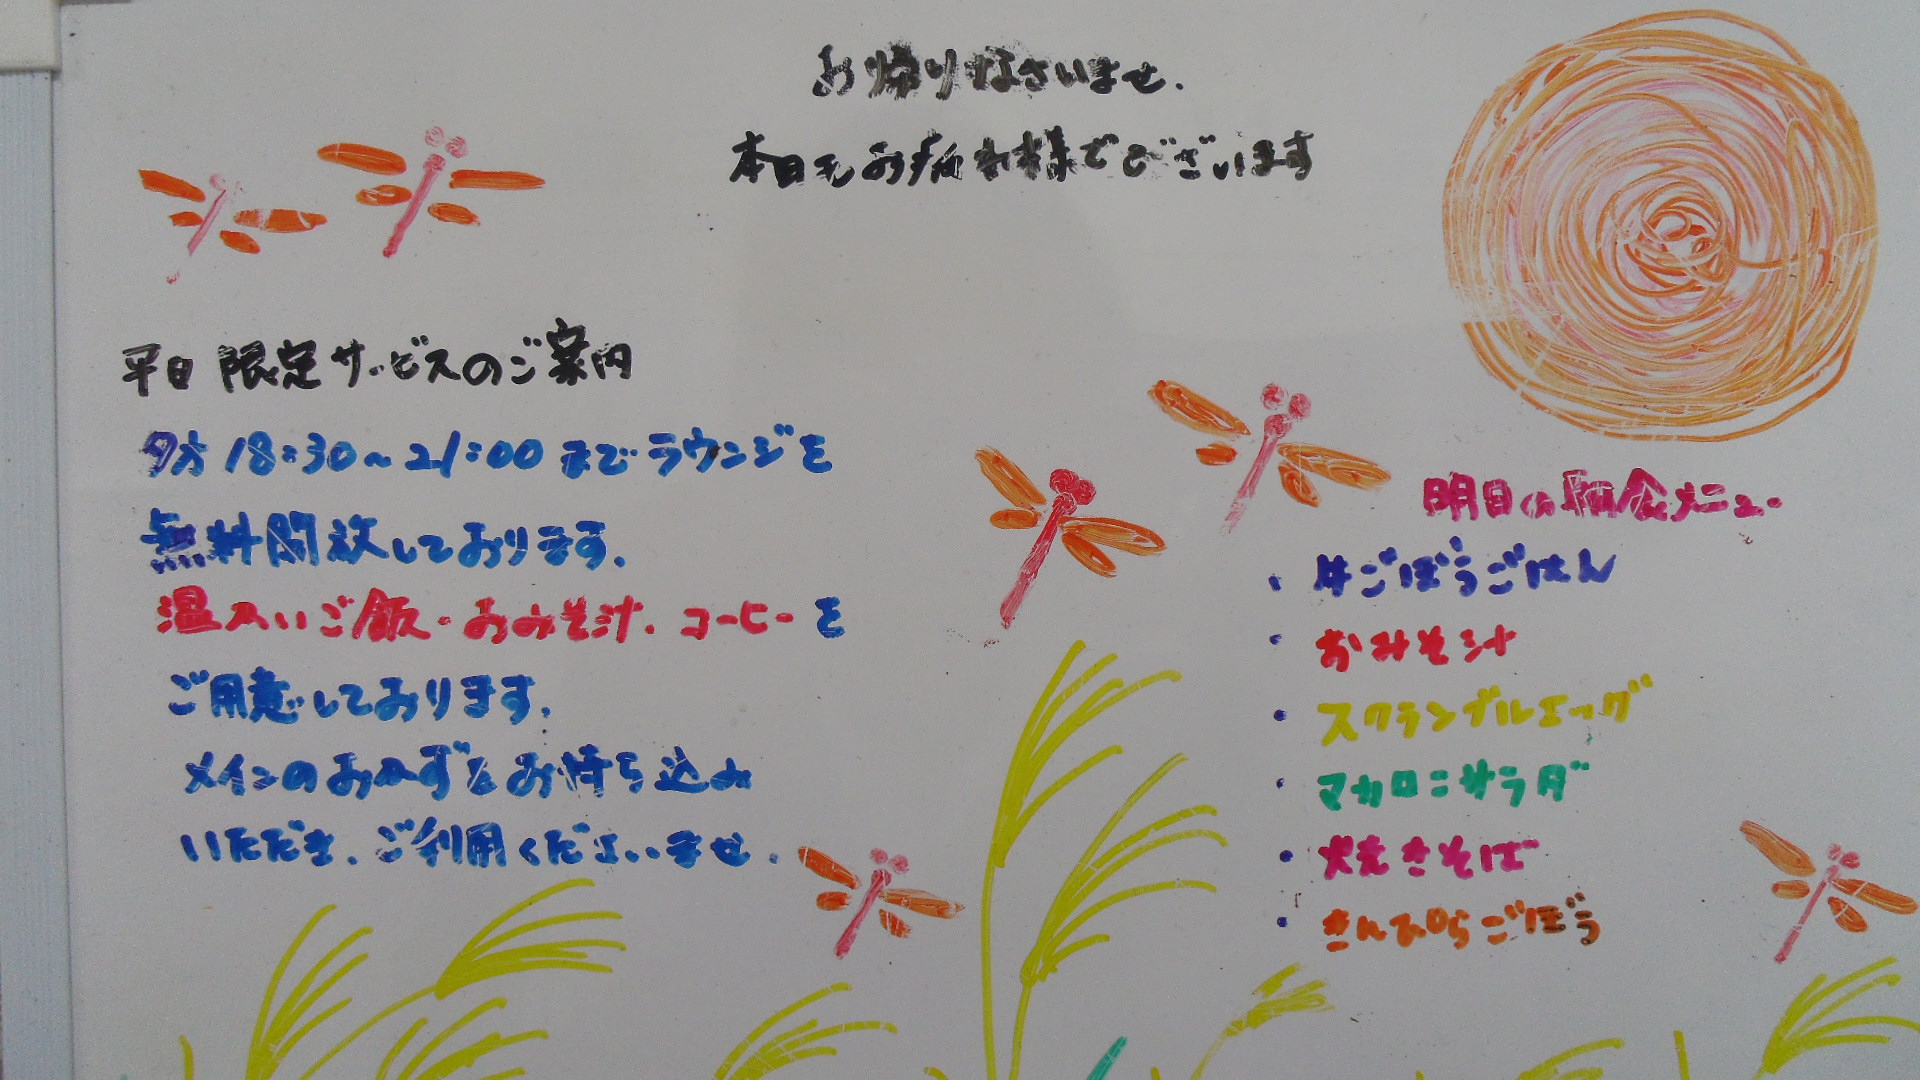 お帰りなさいませ.
本日もお疲れ様でございます
平日限定サービスのご案内
夕方18:30〜21:00までラウンジを
無料開放しております.
温かいご飯・おみそ汁.コーヒーを
ご用意しております.
メインのおかずをお持ち込み
いただき.ご利用くださいませ.
明日の朝食メニュー
・牛ごぼうごはん
・おみそ汁
・スクランブルエッグ
・マカロニサラダ
・焼きそば
・きんぴらごぼう